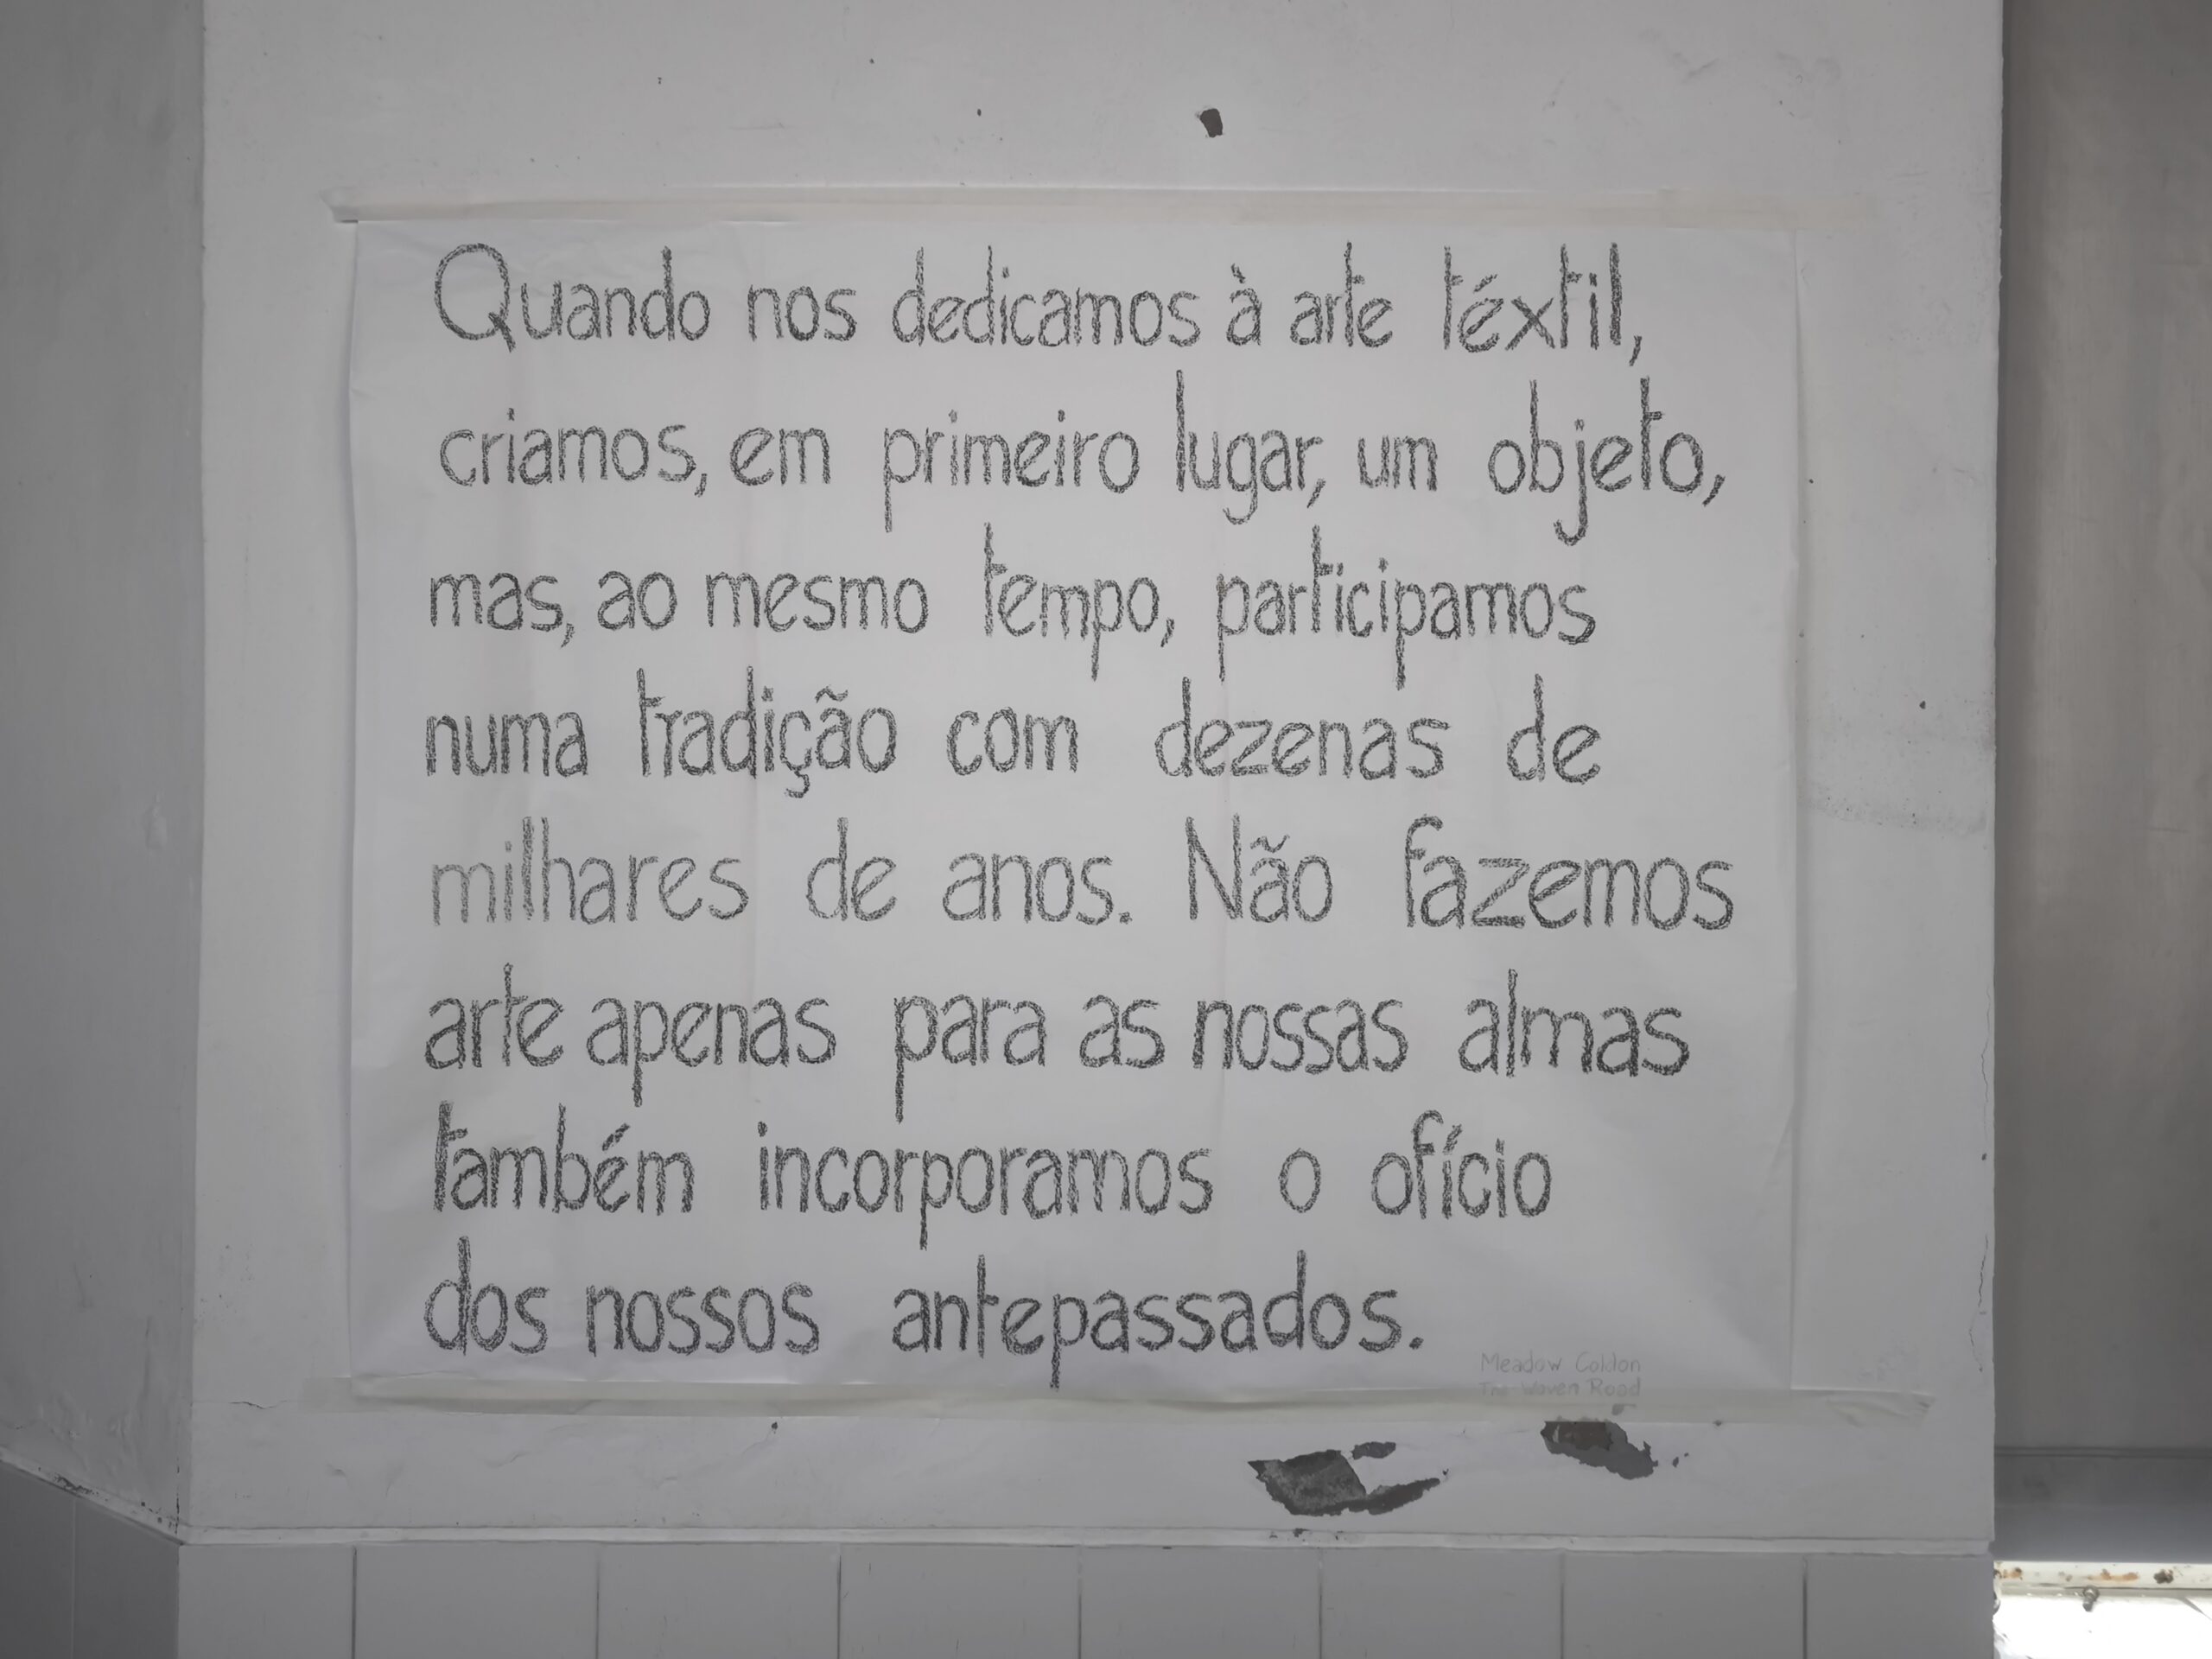 Quando nos dedicamos à arte téxtil,
criamos, em primeiro lugar, um objeto,
mas, ao mesmo tempo, participamos
numa tradição com dezenas de
milhares de anos. Não fazemos
arte apenas para as nossas almas
também incorporamos o ofício
dos nossos antepassados.
Meadow Coldon
The Woven Road